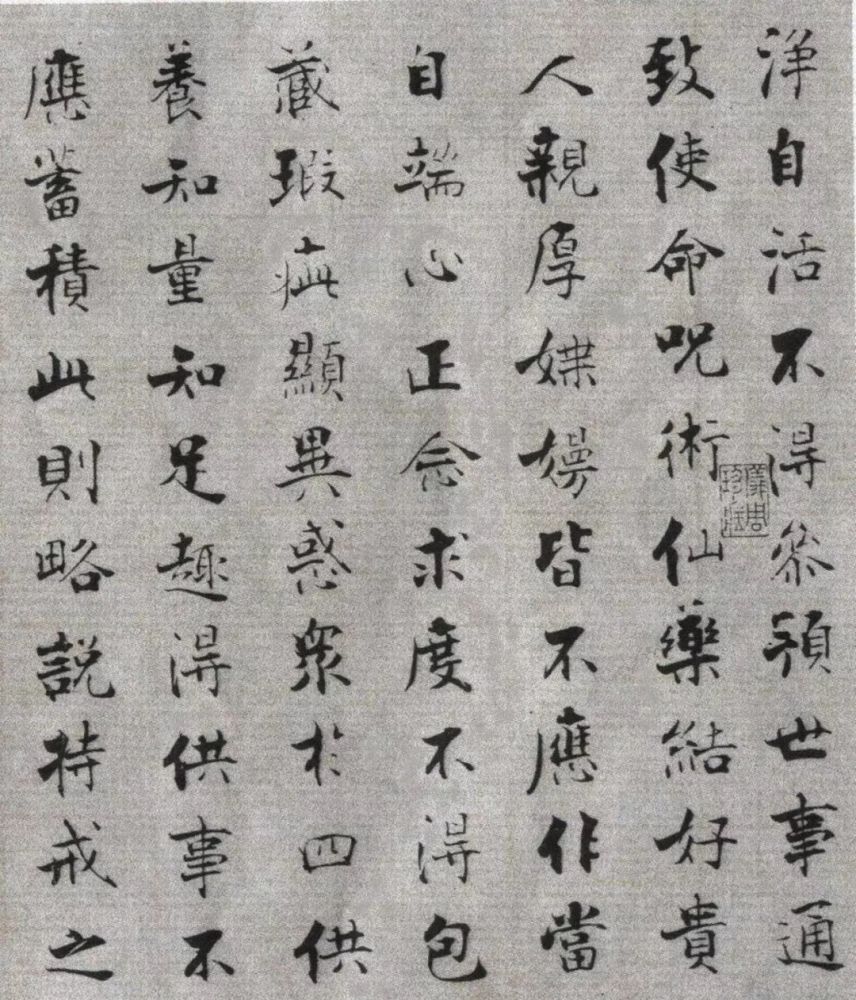 淨自活不得參預世事通
致使命呪術仙藥結好貴
人親厚媟嫚皆不應作當
自端心正念求度不得包
藏瑕疵顯異惑衆於四供
養知量知足趣得供事不
應蓄積此則略說持戒之